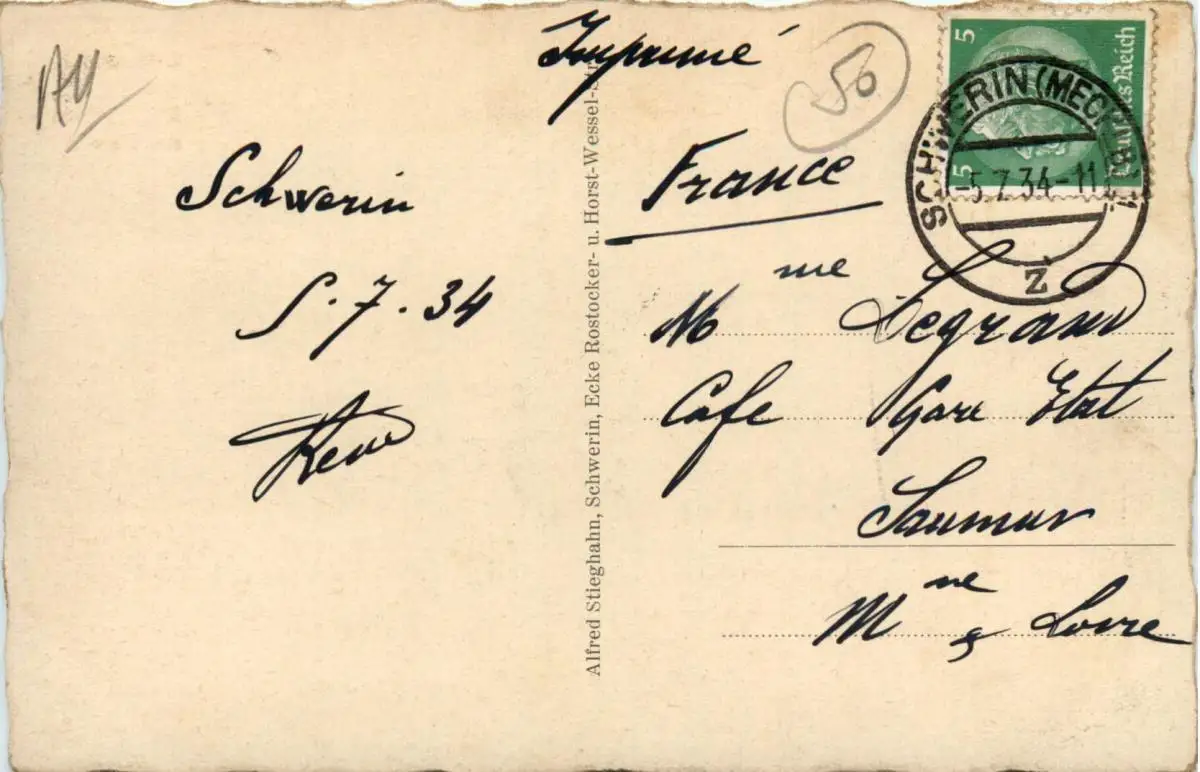 Imprimé
50
5
Deutsches Reich
5
SCHWERIN (MECKLB)1
-5.7.34-11
z
Schwerin
5.7.34
Alfred Stieghahn, Schwerin, Ecke Rostocker- u. Horst-Wessel-Str
France
Mme Legrand
Cafe Gare Etat
Saumur
Mne & Loire